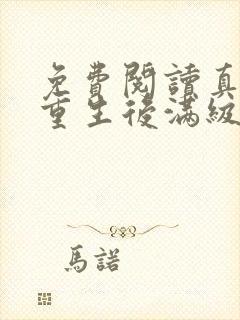 免費閱讀真
重生後滿級
馬諾